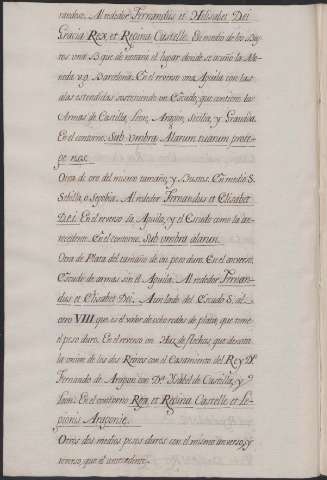 randose. Al rededor Fernandus et Helisabet Dei
Gracia Rex, et Regina Castelle. En medio de los Bus
tos una B que denotara el lugar donde se acuño la Mo-
neda v.g. Barcelona. En el reverso una Aguila con las
alas estendidas sosteniendo un Escudo, que contiene las
Armas de Castilla, Leon, Aragon, Sicilia, y Granada.
En el contorno: Sub Umbra Alarum tuarum prote-
ge nos.
Otra de oro del mismo tamaño, y Bustos. En medio S.
Sebilla, o Segobia. Al rededor Fernandus et Elisabet
Dei. En el reverso la Aguila, y el Escudo como la an-
tecedente. En el contorno. Sub umbra alarum.
Otra de Plata del tamaño de un peso duro. En el anverso
Escudo de armas sin el Aguila. Al rededor Fernan-
dus et Elisabet Dei. A un lado del Escudo S. al
otro VIII. que es el valor de ocho reales de plata, que tiene
el peso duro. En el reverso un Haz de flechas que denota
la union de los dos Reinos con el Casamiento del Rey Dn
Fernando de Aragon con Dª Ysabel de Castilla, y
Leon. En el contorno Rex, et Regina Castelle et Le-
gionis Aragonie.
Otros dos medios pesos duros con el mismo anverso, y
reverso, que el antecedente.